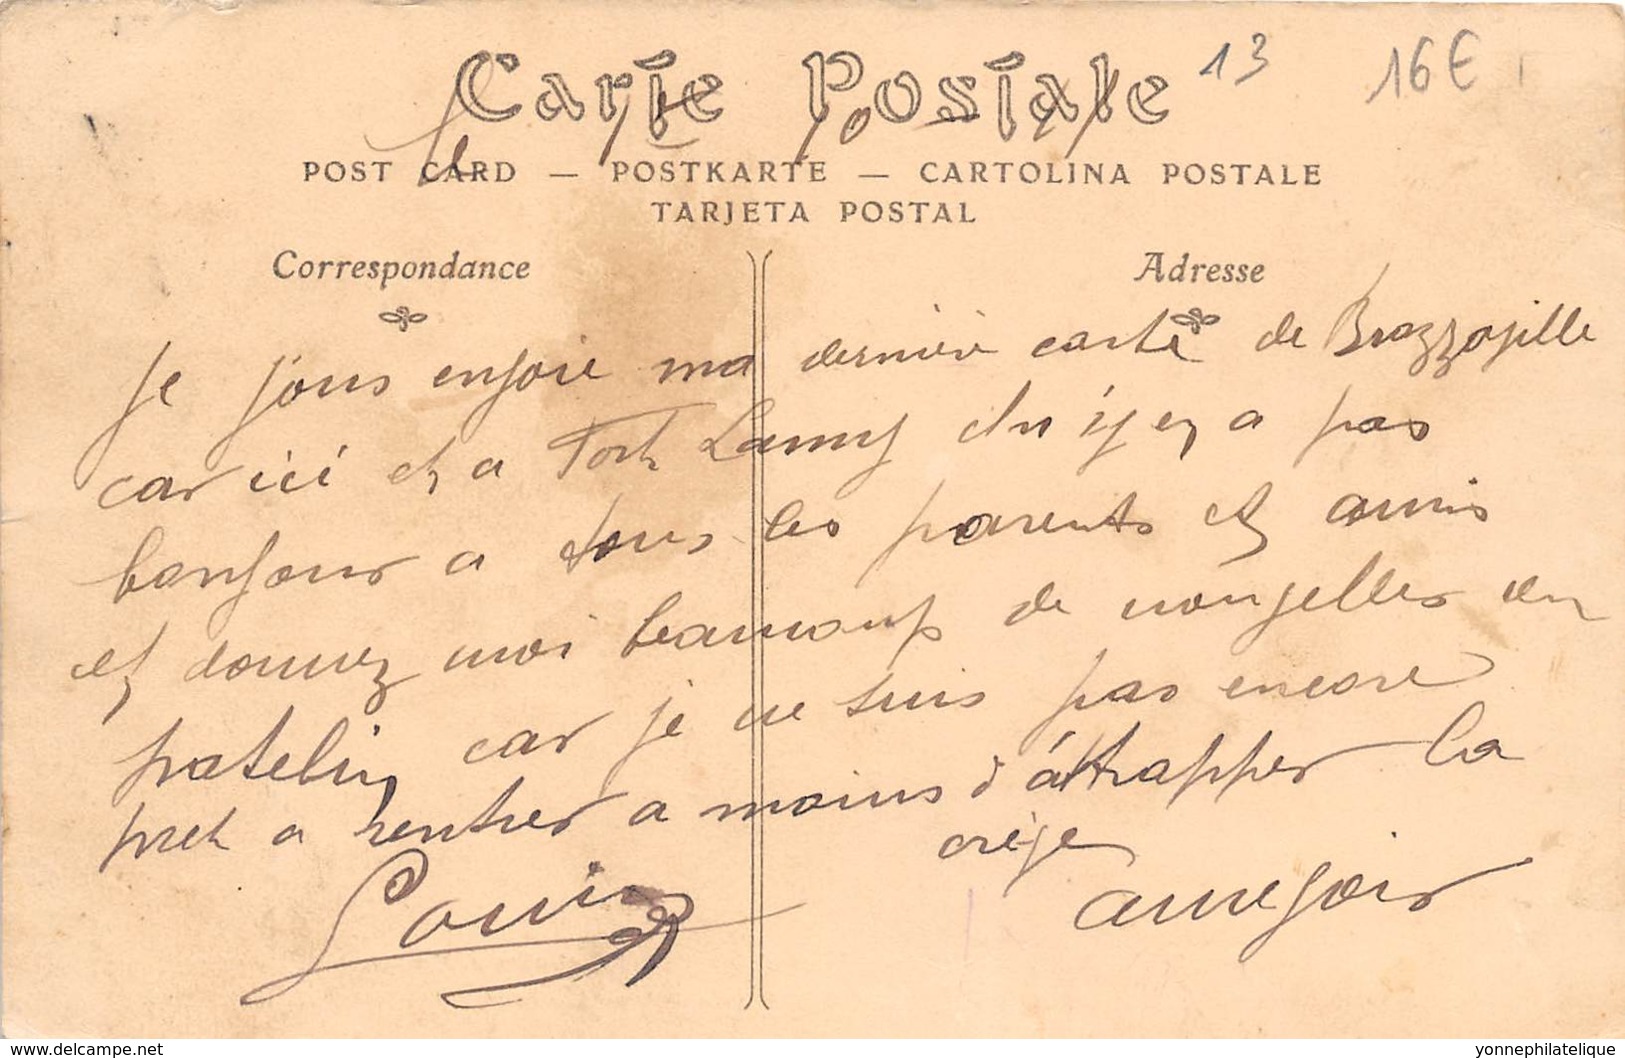 13
16€
Carte Postale
Le 14 - 10 - 14
POST CARD — POSTKARTE — CARTOLINA POSTALE
TARJETA POSTAL
Correspondance
Adresse
Je vous envoie ma derniere carte de Brazzaville
car ici et a Fort Lamy il n'y en a pas
bonjour a tous les parents et amis
et donnez moi beaucoup de nouvelles du
patelin car je ne suis pas encore
pret a rentrer a moins d'attrapper la
crève
Louis
aurevoir
www.delcampe.net
yonnephilatelique